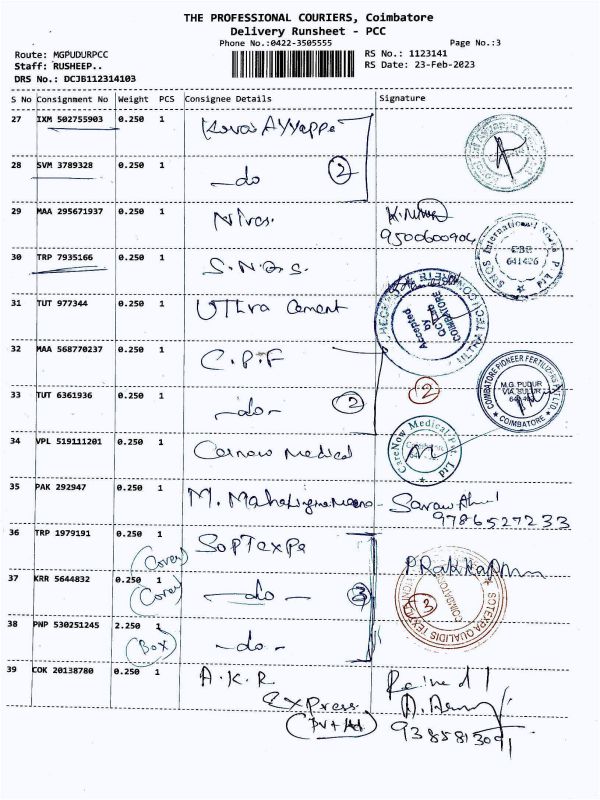 THE PROFESSIONAL COURIERS, Coimbatore
Delivery Runsheet - PCC
Phone No.:0422-3505555
Page No.:3
Route: MGPUDURPCC
RS No.: 1123141
Staff: RUSHEEP..
RS Date: 23-Feb-2023
DRS No.: DCJB112314103
S No Consignment No Weight PCS Consignee Details Signature
27 IXM 502755903 0.250 1
28 SVM 3789328 0.250 1 -do 2
29 MAA 295671937 0.250 1
9500600904
SNQS International Socks P
641406
PJT
30 TRP 7935166 0.250 1 S.N.Q.S.
31 TUT 977344 0.250 1 Ultra Cement
Accepted
by
COIMBATORE
32 MAA 568770237 0.250 1 C.P.F
COIMBATORE PIONEER FERTILIZERS LTD
M.G. PUDUR
VIA SULUR
COIMBATORE
33 TUT 6361936 0.250 1 -do- 2 2
34 VPL 519111201 0.250 1 Carnow Medical
CareNow Medical Pvt
PJT
35 PAK 292947 0.250 1 M.
9786527233
36 TRP 1979191 0.250 1 SopTexpa
(Cover)
37 KRR 5644832 0.250 1 -do- 3 3
(Cover)
COIMBATORE
38 PNP 530251245 2.250 1 -do-
(Box)
39 COK 20138780 0.250 1 A.K.R
Express
9385813091